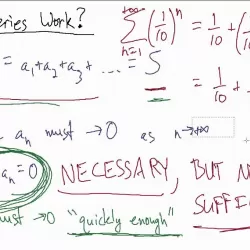 eries Work?
∑_{n=1}^{+∞} (1/10)^n = 1/10 + (
= a₁+a₂+a₃+ ... = S
= 1/10 +
aₙ must → 0 as n→+∞
aₙ=0
NECESSARY, BUT N
SUFF
must → 0 "quickly enough"